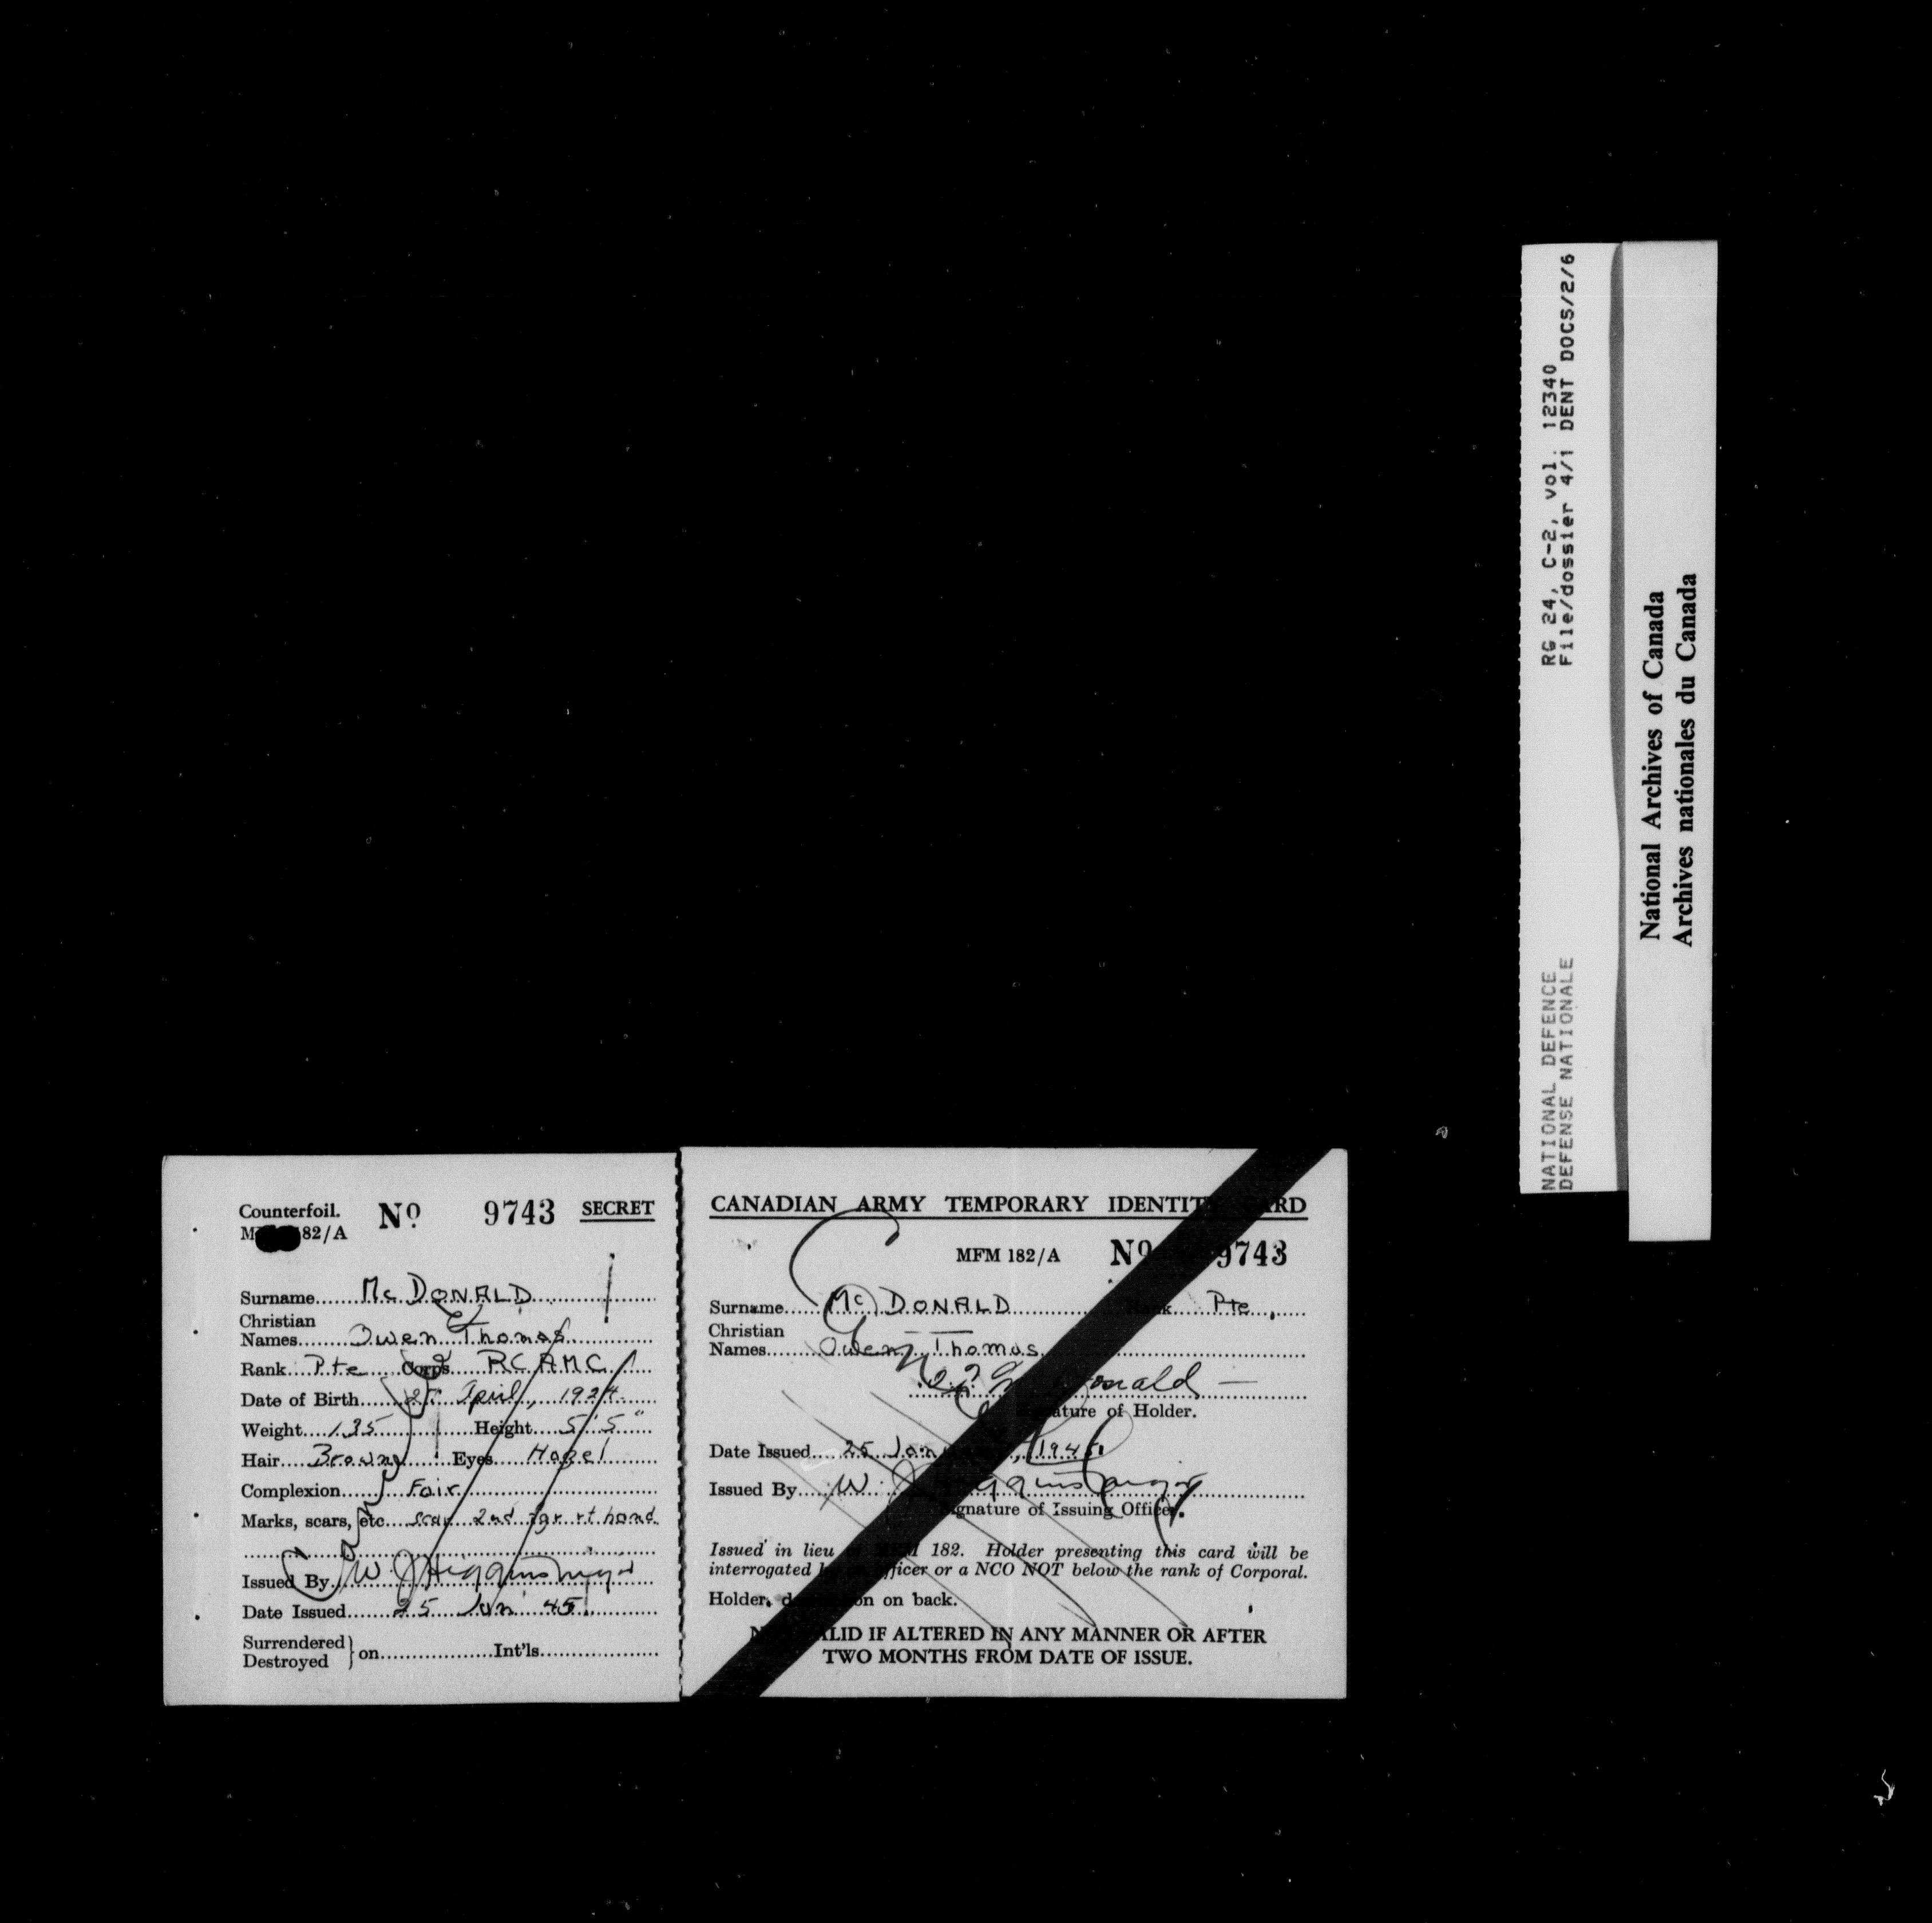 Counterfoil. No 9743 SECRET
82/A
Surname McDONALD
Christian
Names Owen Thomas
Rank Pte Corps RCAMC
Date of Birth April, 1924
Weight 135 Height 5' 5"
Hair Brown Eyes Hazel
Complexion Fair
Marks, scars, etc scar 2nd fgr rt hand
Issued By W J Higgins Major
Date Issued 25 Jan 45
Surrendered
Destroyed } on Int'ls
CANADIAN ARMY TEMPORARY IDENTITY CARD
MFM 182/A No 9743
Surname McDONALD Rank Pte.
Christian
Names Owen Thomas
Signature of Holder.
Date Issued 25 Jan 1945
Issued By W J Higgins Major
Signature of Issuing Officer.
Issued in lieu of MFM 182. Holder presenting this card will be
interrogated by officer or a NCO NOT below the rank of Corporal.
Holder on back.
NOT VALID IF ALTERED IN ANY MANNER OR AFTER
TWO MONTHS FROM DATE OF ISSUE.
NATIONAL DEFENCE RG 24, C-2, vol. 12340
DEFENSE NATIONALE File/dossier 4/1 DENT DOCS/2/6
National Archives of Canada
Archives nationales du Canada